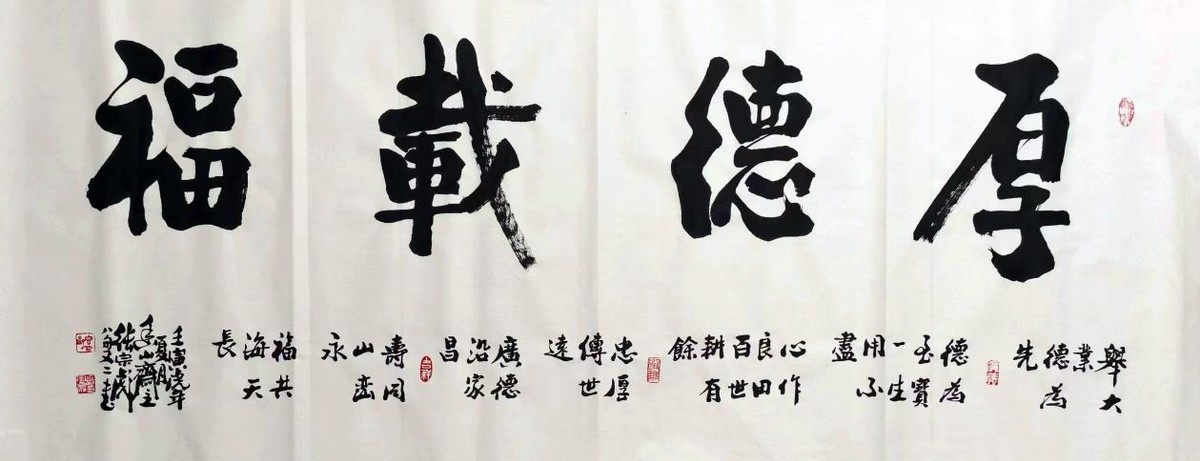 厚德載福
舉大
業
德為
先
德為
至寶
一生
用不
盡
心作
良田
百世
耕有
餘
忠厚
傳世
遠
廣德
沿家
昌
壽同
山峦
永
福共
海天
長
壬寅年
夏月
山齋主